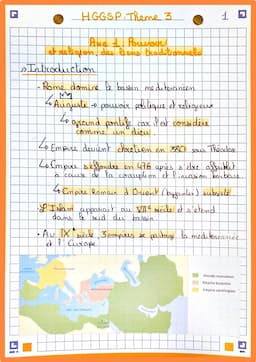 HGGSP. Thème 3
1
Axe 1 Pouvoir
et religion, des liens traditionnels
Introduction
- Rome domine le bassin méditerranéen
↳ Auguste → pouvoir politiques et religieux
↳ grand pontife car il est considéré
comme un dieu
↳ Empire devient chrétien en 380 sous Théodose
↳ Empire s'effondre en 476 après s'être affaiblit
à cause de la corruption et l'invasion barbare
↳ Empire Romain d'Orient (byzantin) subsiste
L'Islam apparait au VIIe siècle et s'étend
dans le sud du bassin
- Au IXe siècle 3 empires se partage la méditerranée
et l'Europe
Monde musulman
Empire byzantin
Empire carolingien